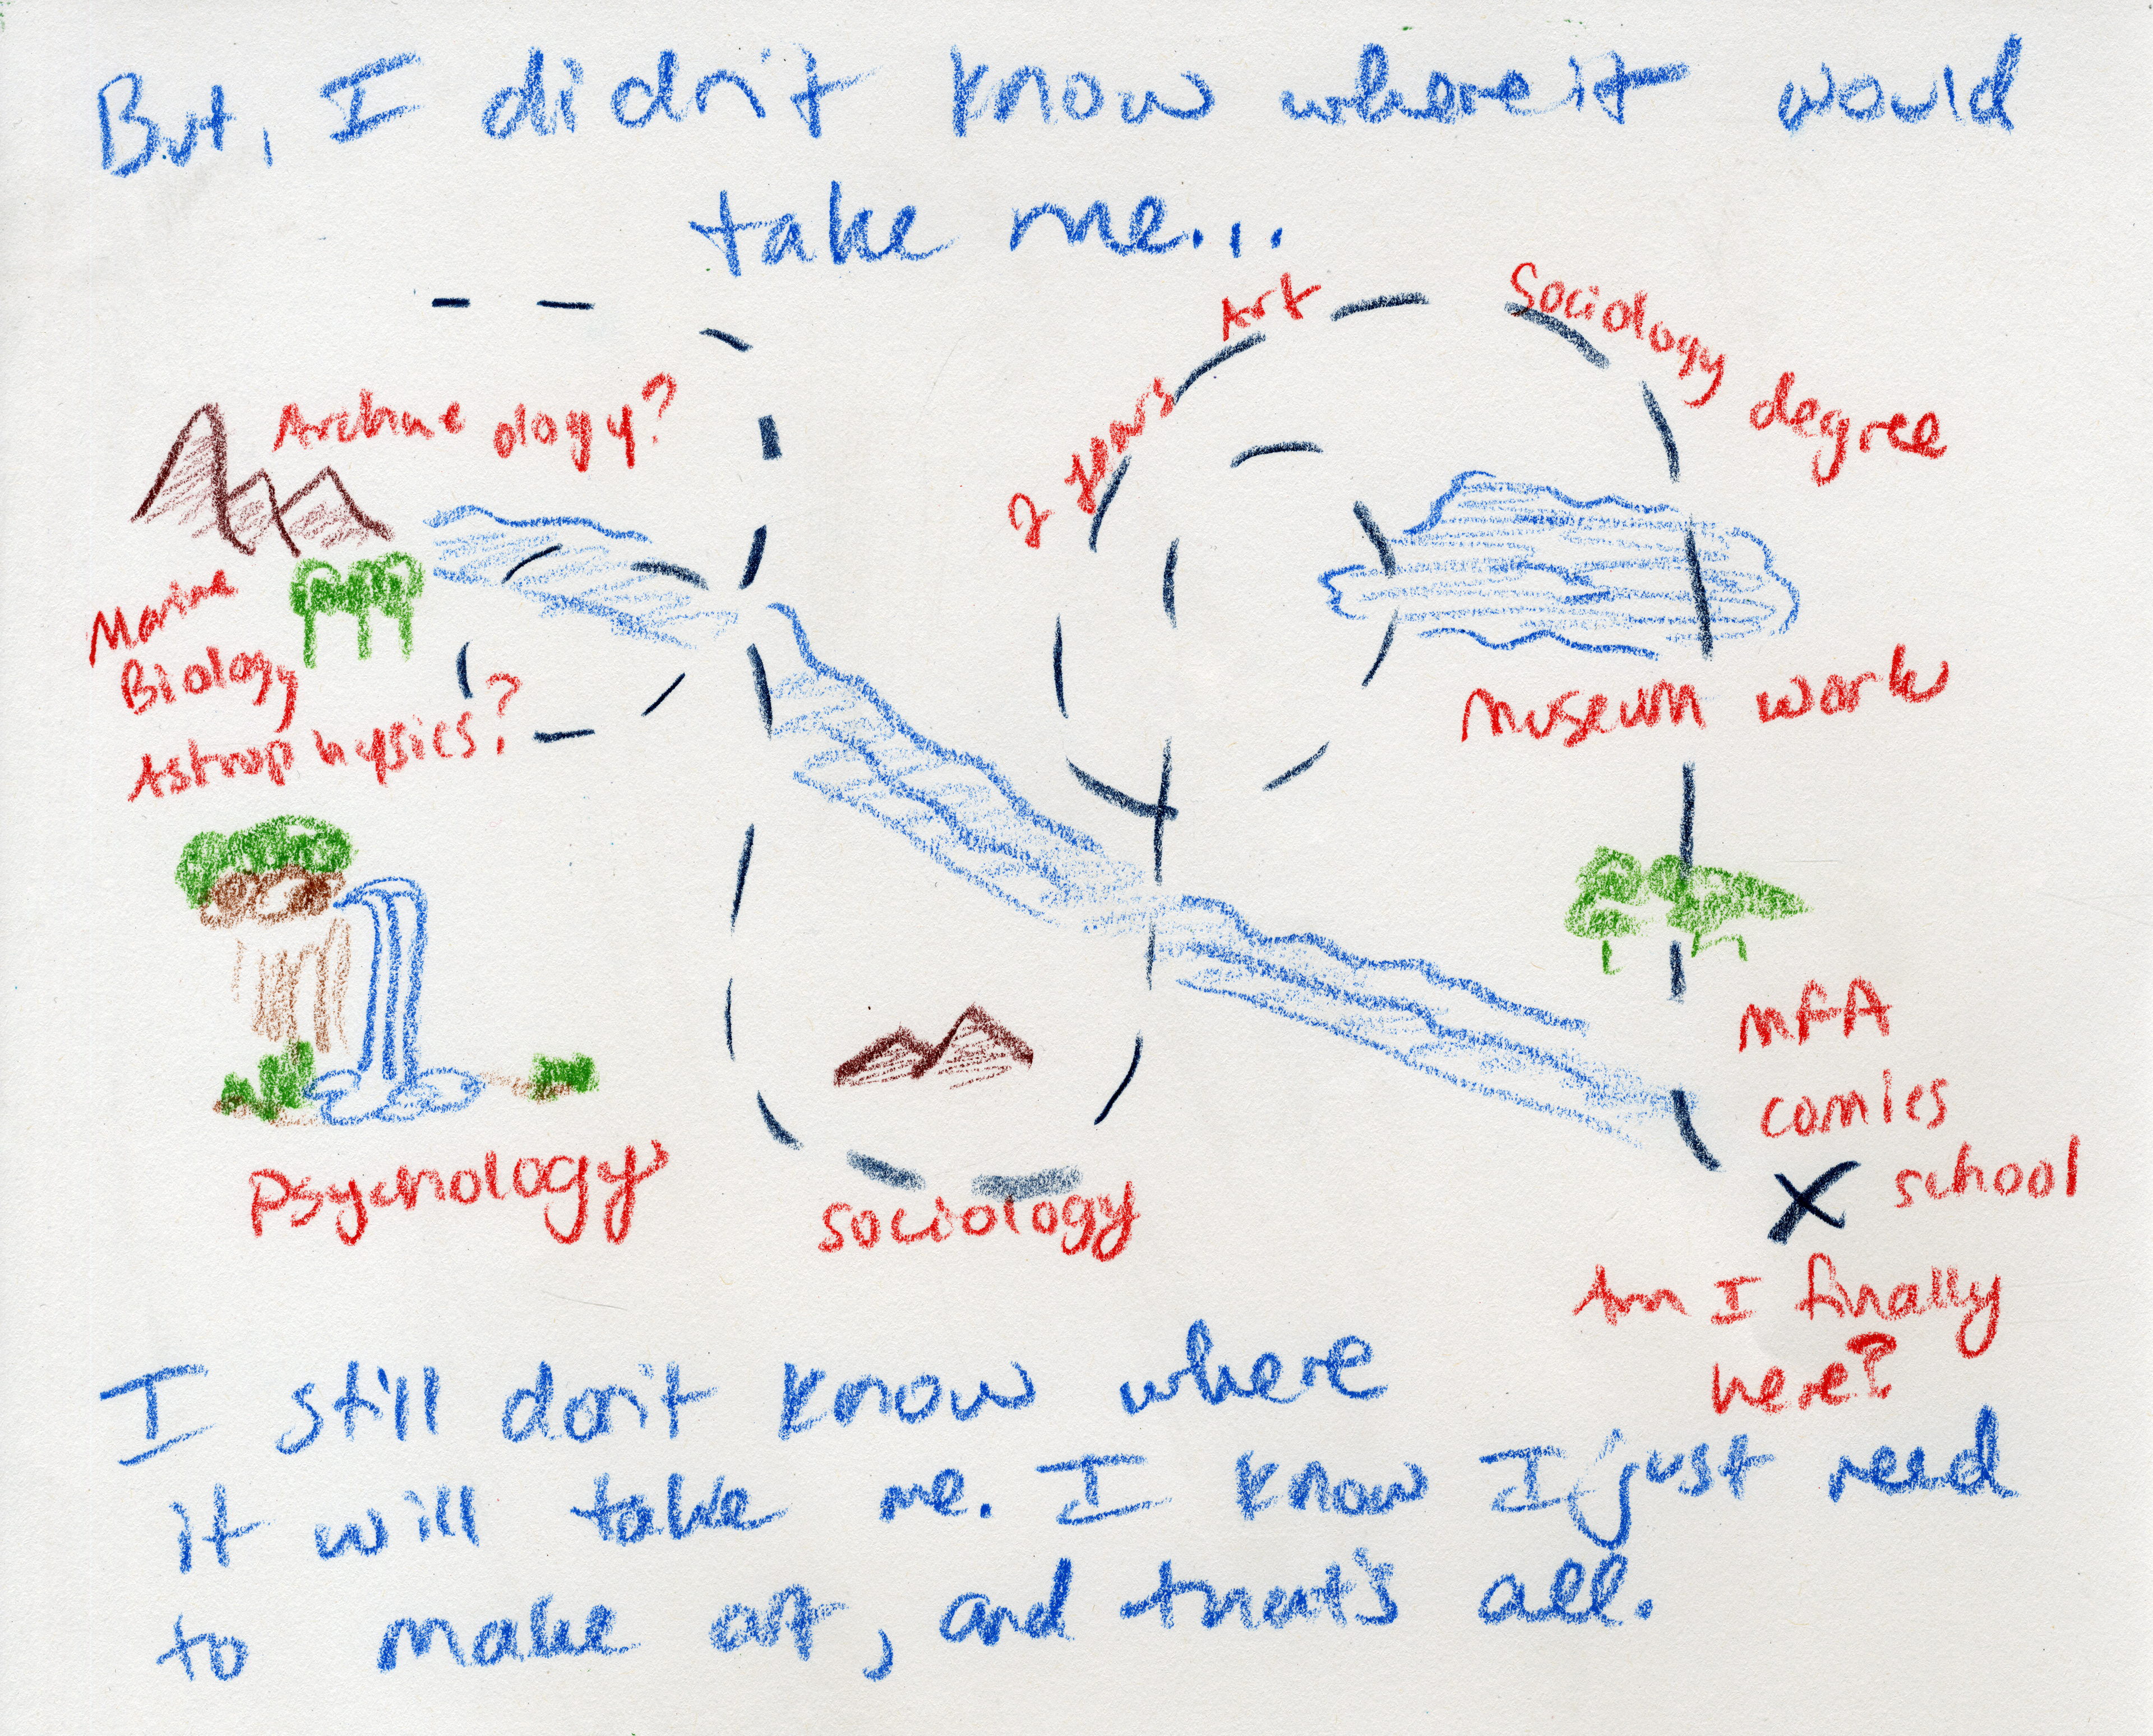 But, I didn't know where it would
take me...
Archaeology?
Marine
Biology
Astrophysics?
Psychology
Sociology
2 years Art
Sociology degree
Museum work
MFA
comics
school
Am I finally
here?
I still don't know where
it will take me. I know I just need
to make art, and that's all.